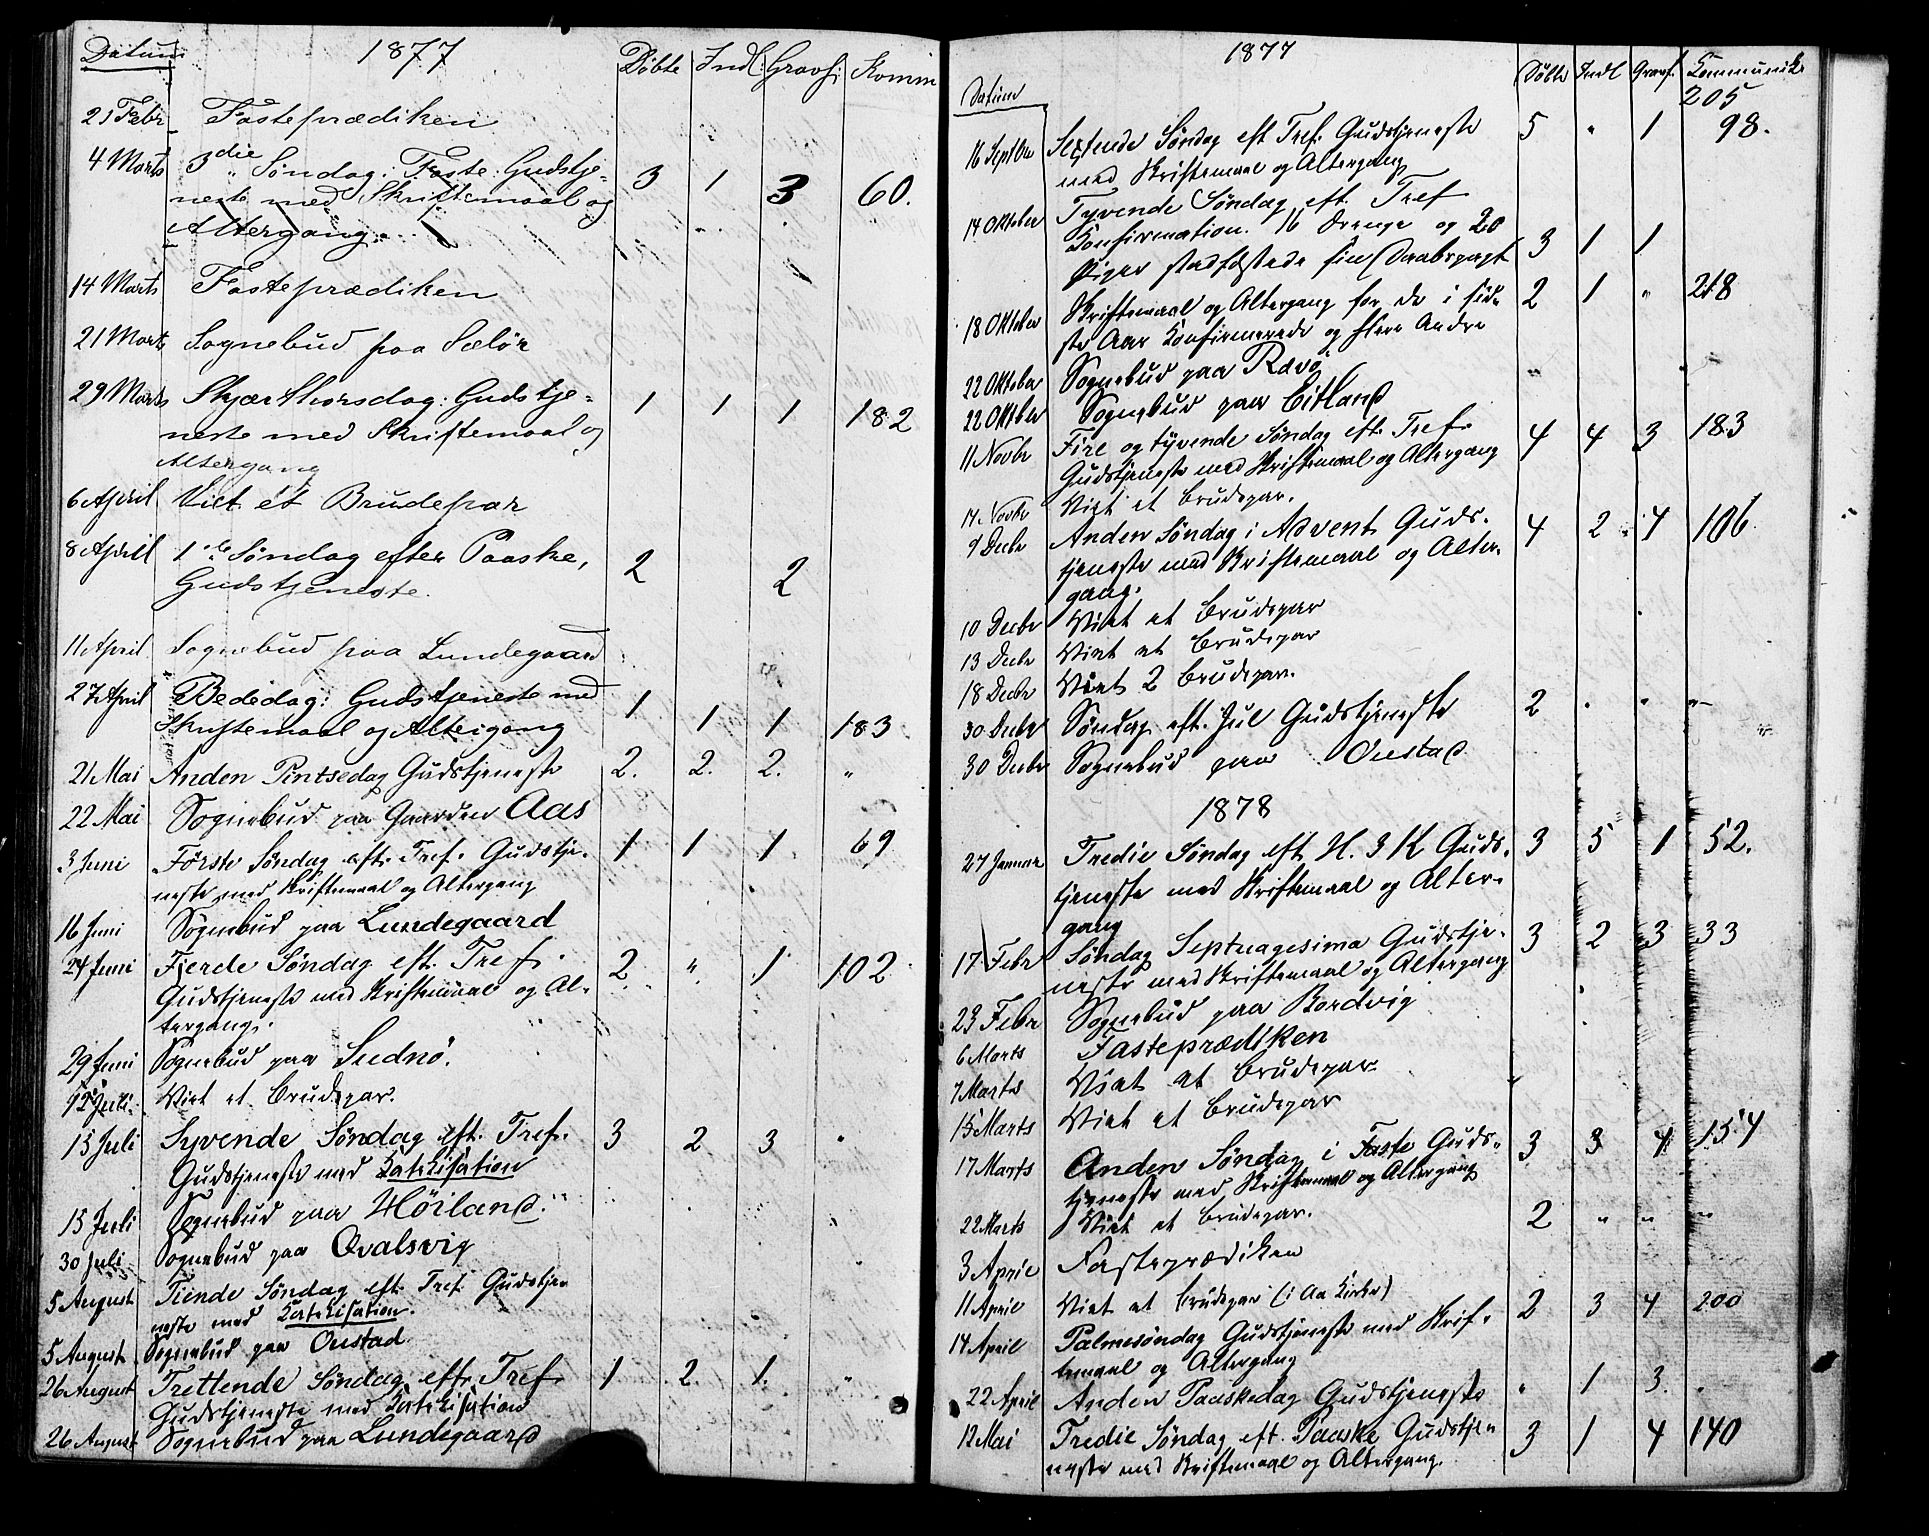 Datum 1877 Döbte Indl: Gravf: Komm
21 Febr Fasteprædiken
4 Marts 3die Söndag i Faste: Gudstje- 3 1 3 60.
neste med Skriftemaal og
Altergang.
14 Marts Fasteprædiken
21 Marts Sognebud paa Selör
29 Marts Skjærthorsdag: Gudstje- 1 1 1 182
neste med Skriftemaal og
Altergang
6 April Viet et Brudepar
8 April 1ste Söndag efter Paaske, 2 2
Gudstjeneste.
11 April Sognebud paa Lundegaard
27 April Bededag: Gudstjeneste med 1 1 1 183
Skriftemaal og Altergang
21 Mai Anden Pintsedag Gudstjeneste 2. 2. 2. "
22 Mai Sognebud paa Gaarden Aas
3 Juni Förste Söndag eft. Tref. Gudstje- 1 1 1 69
neste med Skriftemaal og Altergang
16 Juni Sognebud paa Lundegaard
24 Juni Fjerde Söndag eft. Tref. 2. " 1 102
Gudstjeneste med Skriftemaal og Al-
tergang.
29 Juni Sognebud paa Sudnö.
12 Juli Viet et Brudepar.
15 Juli Syvende Söndag eft. Tref. 3 2 3 "
Gudstjeneste med Katekisation
15 Juli Sognebud paa Höiland.
30 Juli Sognebud paa Qvalsvig
5 August Tiende Söndag eft. Tref. Gudstje-
neste med Katekisation.
5 August Sognebud paa Onestad
26 August Trettende Söndag eft. Tref 1 2. 1. "
Gudstjeneste med Katekisation
26 August Sognebud paa Lundegaard
Datum 1877 Döbte Indl Gravf. Kommunik.
205
16 Septbr Sextende Söndag eft Tref. Gudstjeneste 5 " 1 98.
med Skriftemaal og Altergang
14 Oktober Tyvende Söndag eft. Tref
Konfirmation. 16 Drenge og 20 3 1 1
Piger stadfæstede sin Daabspagt
18 Oktober Skriftemaal og Altergang for de i sid- 2 1 " 218
ste Aar Konfirmerede og flere Andre
22 Oktober Sognebud paa Ravö "
22 Oktober Sognebud paa Eitland
11 Novbr Fire og tyvende Söndag eft. Tref. 4 4 3 183
Gudstjeneste med Skriftemaal og Altergang
14. Novbr Viet et Brudepar.
9 Decbr Anden Söndag i Advent Guds- 4 2 4 106
tjeneste med Skriftemaal og Alter-
gang.
10 Decbr Viet et Brudepar
13 Decbr Viet et Brudepar
18 Decbr Viet 2 Brudepar.
30 Decbr Söndag eft. Jul Gudstjeneste 2 " " "
30 Decbr Sognebud paa Onestad
1878
27 Januar Tredie Söndag eft H. 3 K Guds- 3 5 1 52.
tjeneste med Skriftemaal og Alter-
gang
17 Febr Söndag Septuagesima Gudstje- 3 2 3 33
neste med Skriftemaal og Altergang
23 Febr Sognebud paa Bordvig
6 Marts Fasteprædiken
7 Marts Viet et Brudepar.
15 Marts Viet et Brudepar
17 Marts Anden Söndag i Faste Guds- 3 3 4 154
tjeneste med Skriftemaal og Altergang
22 Marts Viet et Brudepar. 2 " " "
3 April Fasteprædiken
11 April Viet et Brudepar (i Aa Kirke)
14 April Palmesöndag Gudstjeneste med Skrif- 2 3 4 200
temaal og Altergang
22 April Anden Paaskedag Gudstjeneste " 1 3. "
12 Mai Tredie Söndag eft. Paaske Gudstje- 3 1 4 140
neste med Skriftemaal og Altergang.